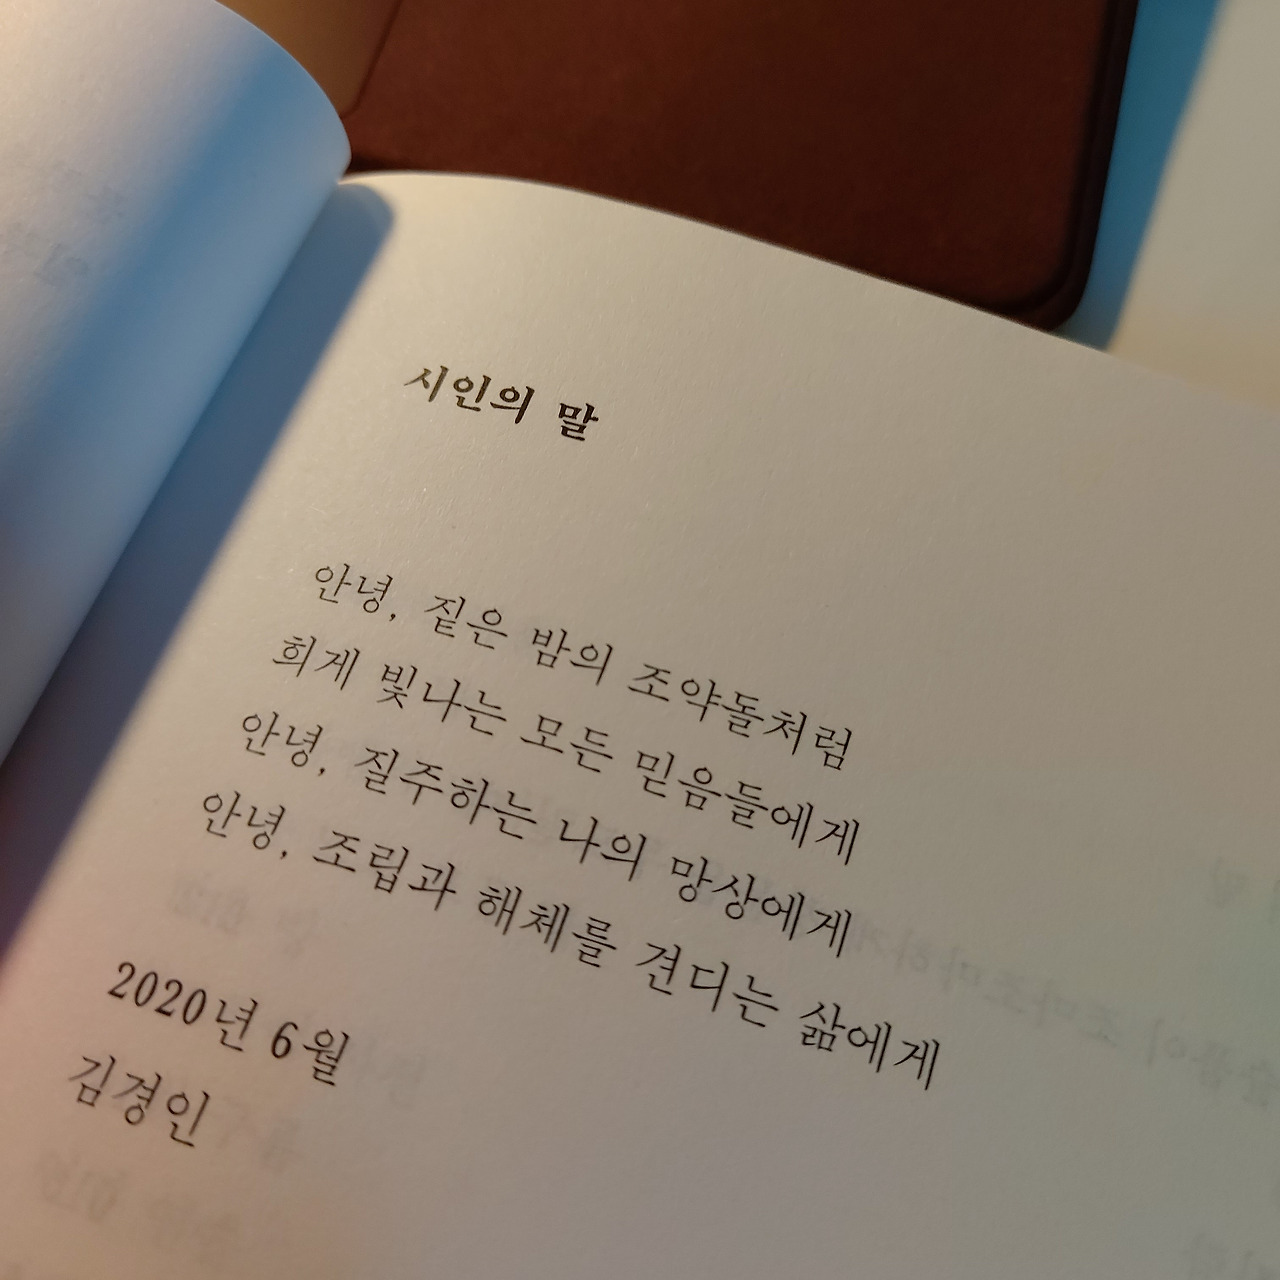 시인의 말
안녕, 짙은 밤의 조약돌처럼
희게 빛나는 모든 믿음들에게
안녕, 질주하는 나의 망상에게
안녕, 조립과 해체를 견디는 삶에게
2020년 6월
김경인